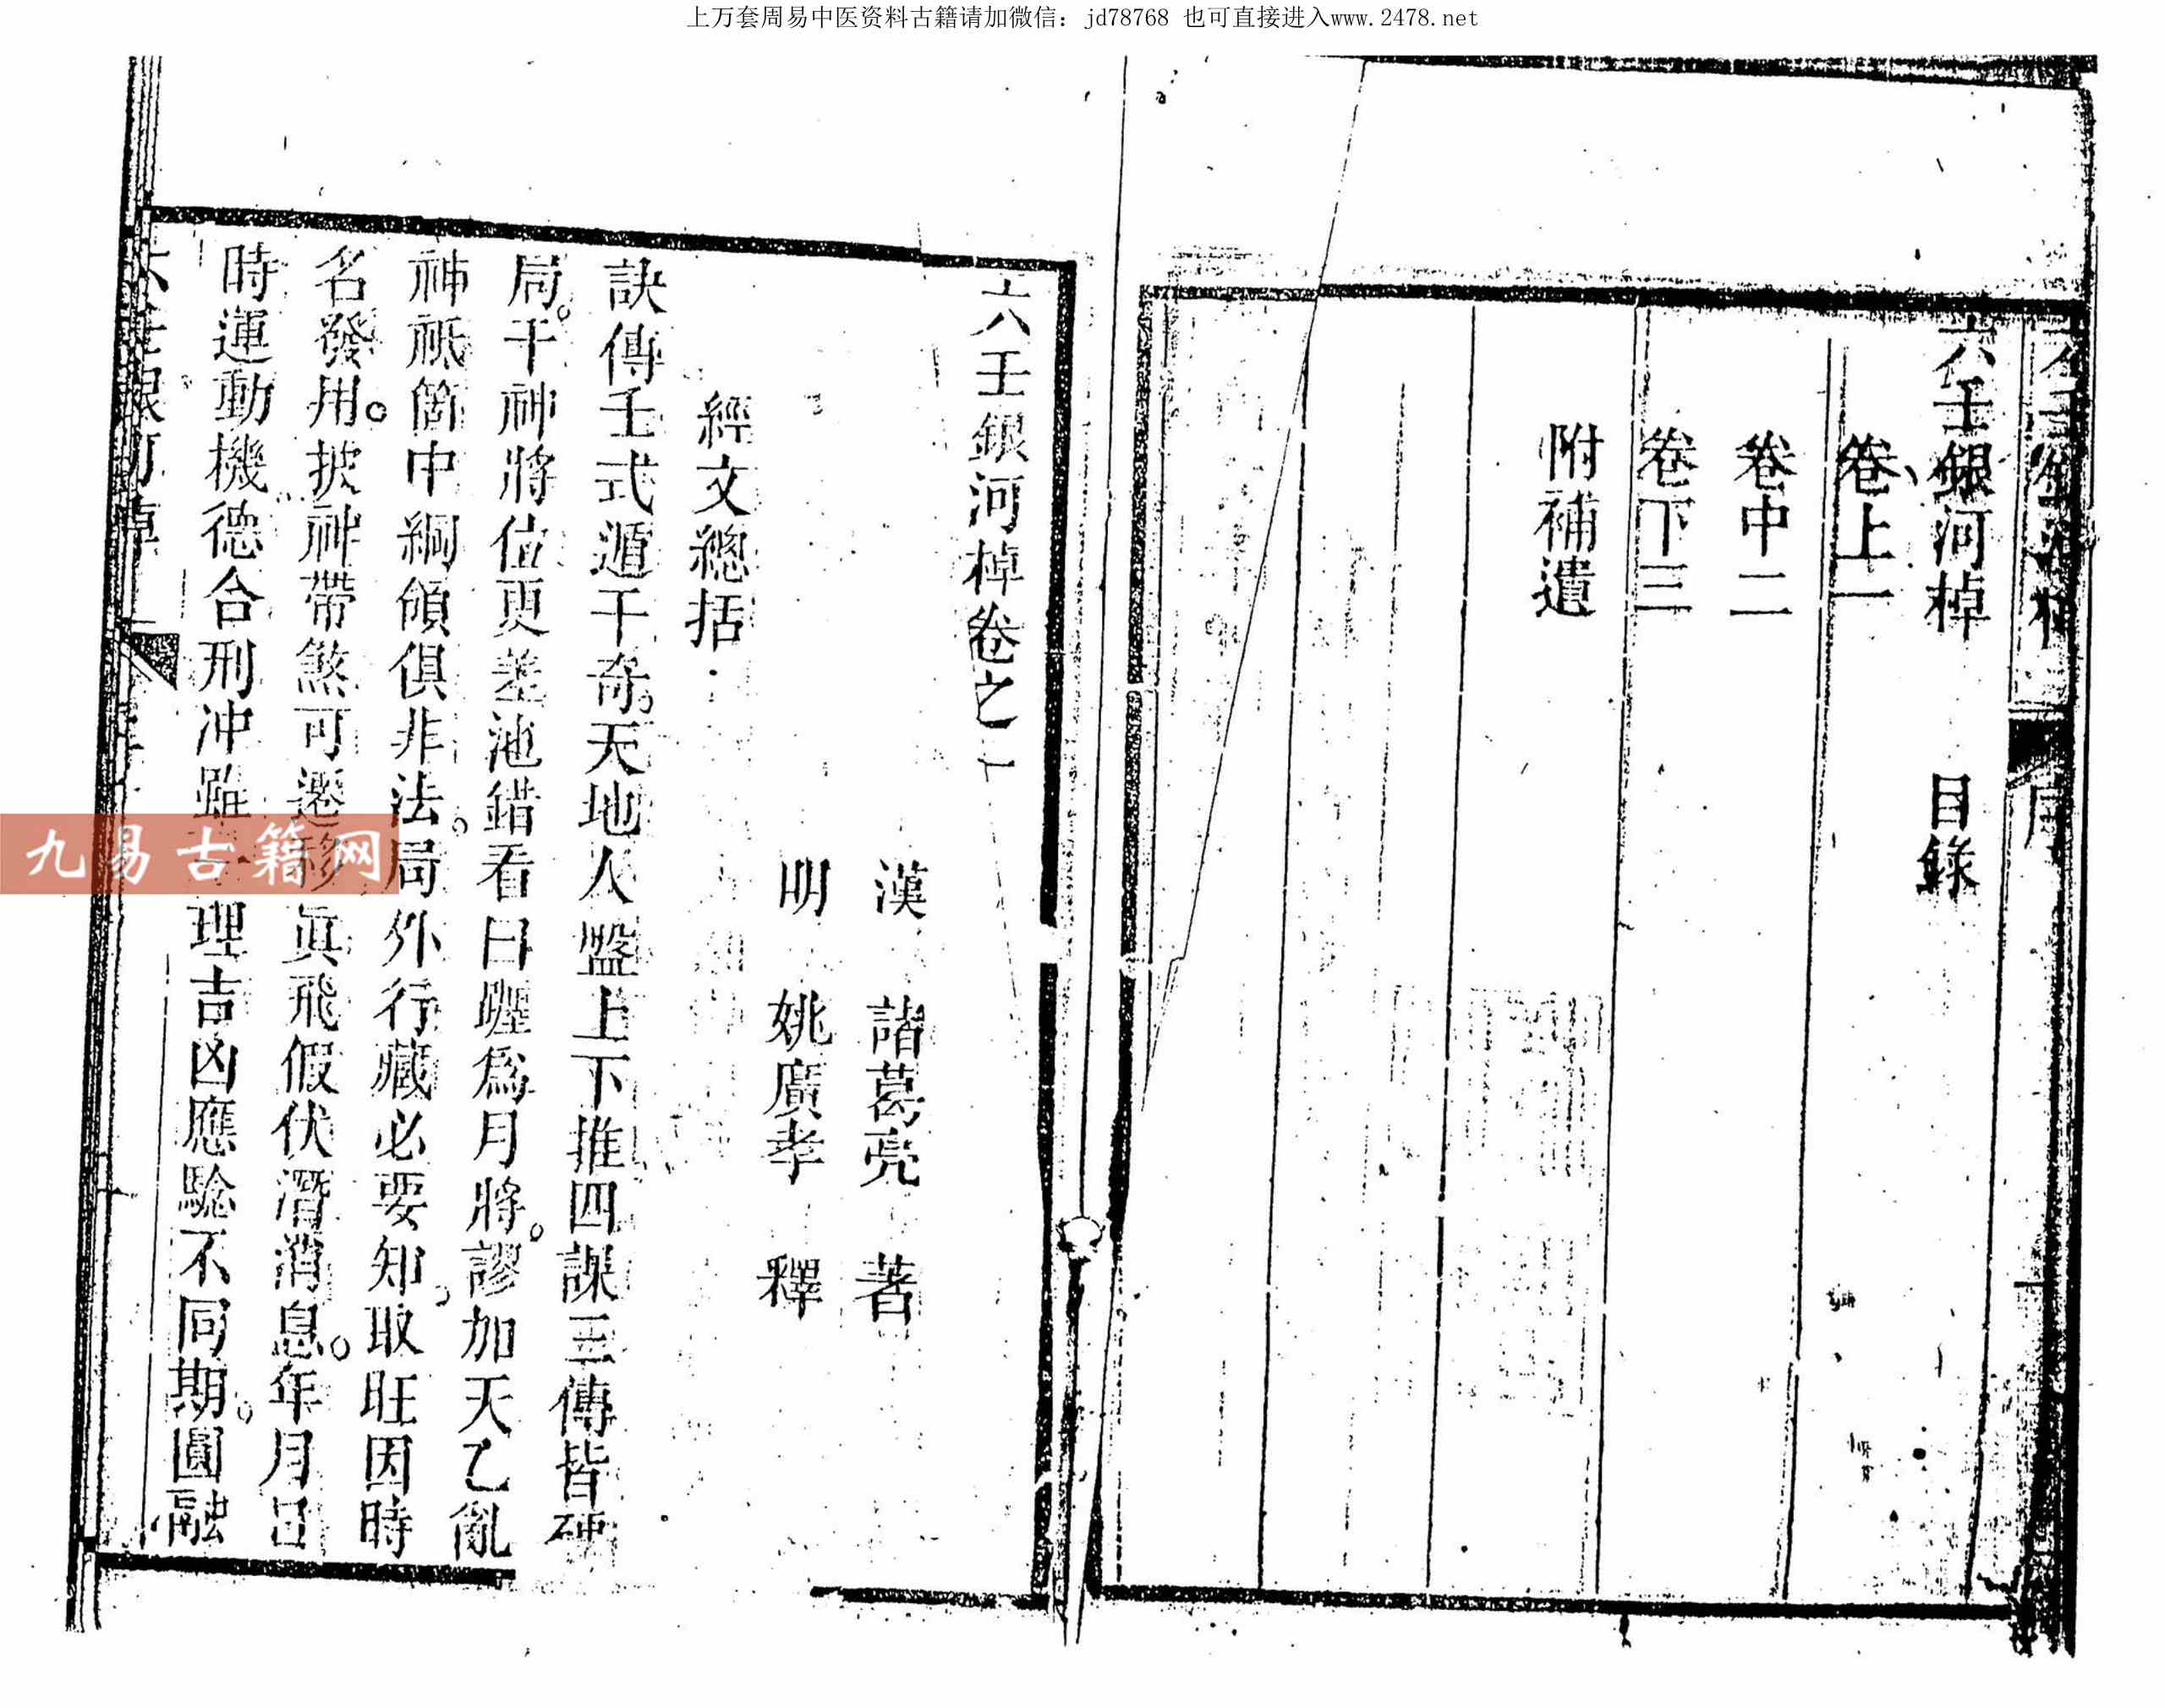 上万套周易中医资料古籍请加微信：jd78768 也可直接进入www.2478.net
六壬銀河棹 目錄
卷上一
卷中二
卷下三
附補遺
六壬銀河棹卷之一
漢 諸葛亮 著
明 姚廣孝 釋
經文總括
訣傳壬式遁干奇。天地人盤上下推。四課三傳皆硬
局。干神將位更差池。錯看日躔爲月將。謬加天乙亂
神祗。箇中綱領俱非法。局外行藏必要知。取旺因時
名發用。披神帶煞可遷移。眞飛假伏潛消息。年月日
時運動機。德合刑冲雖 理。吉凶應驗不同期。圓融
六壬銀河棹
九易古籍网